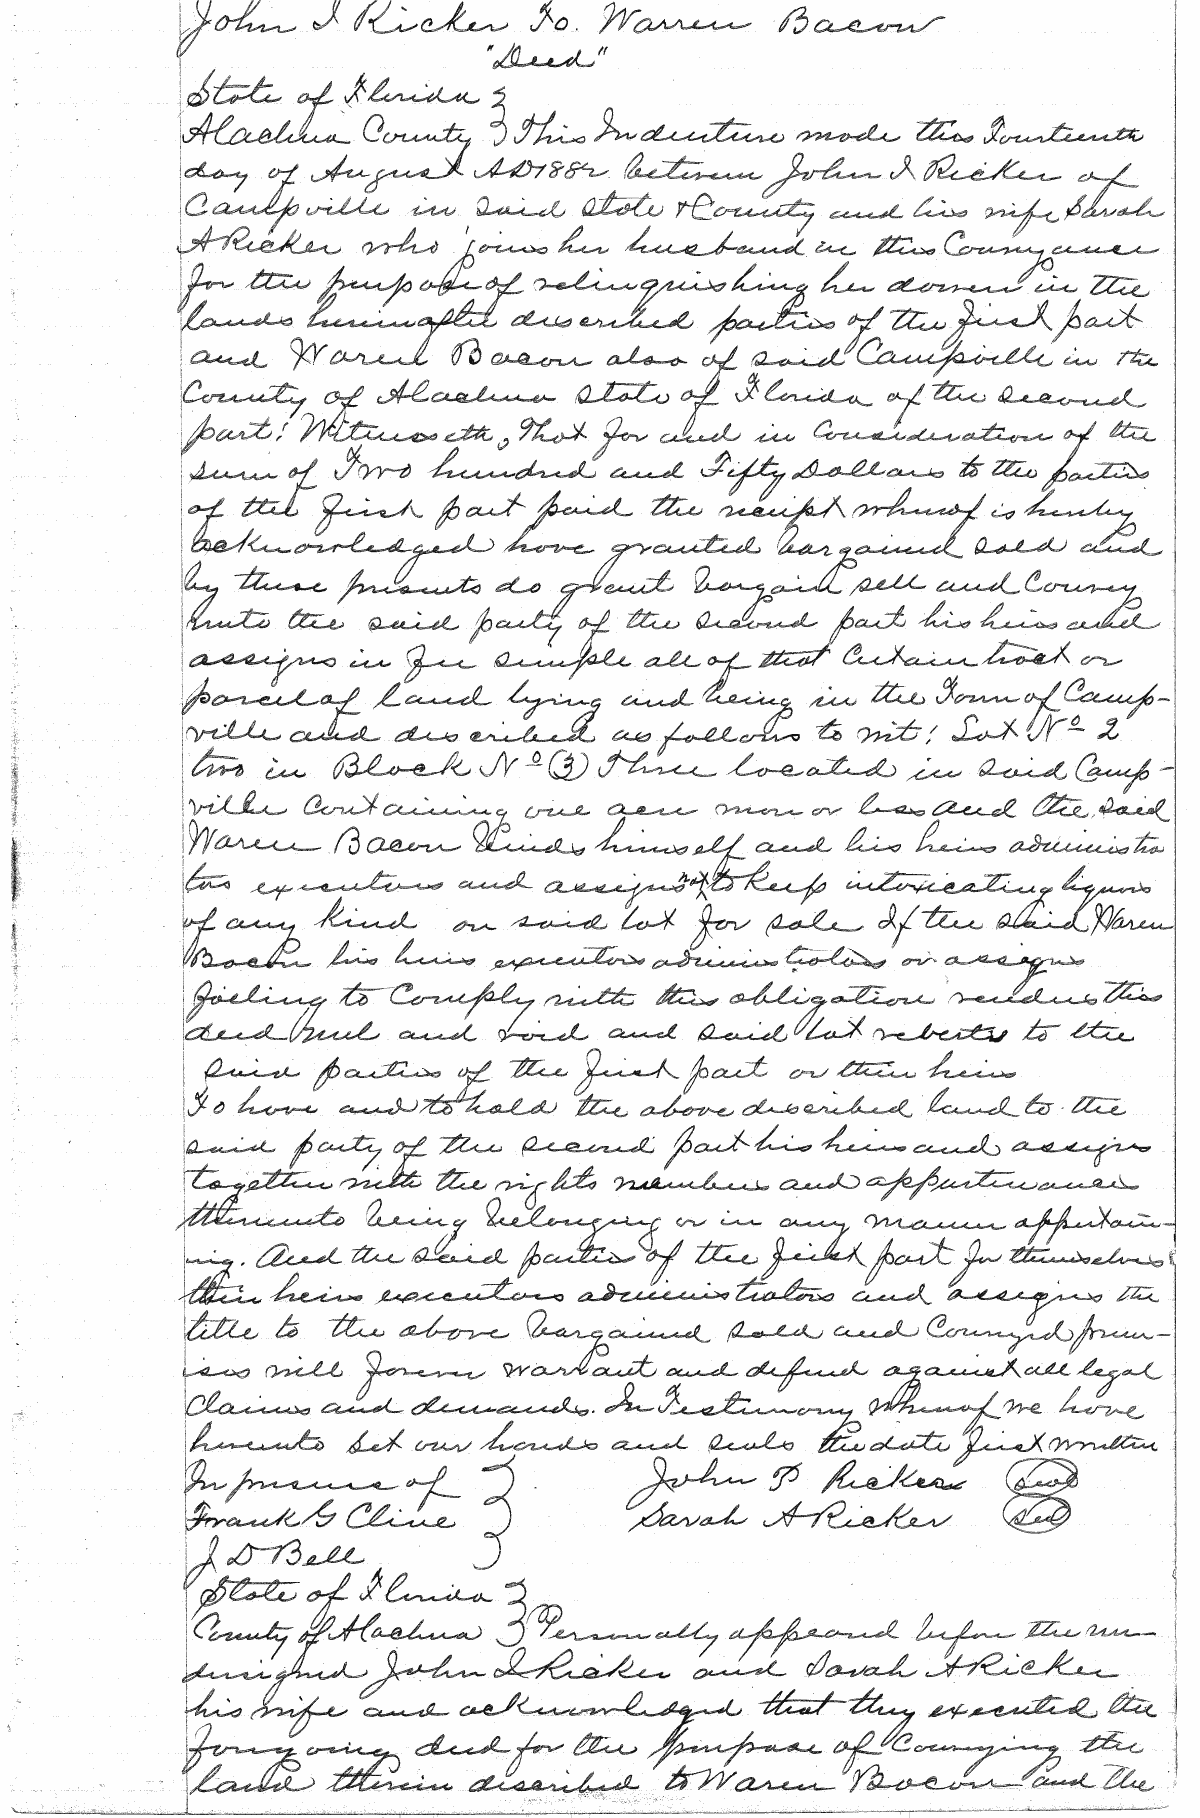 John I Ricker To. Warren Bacon
"Deed"
State of Florida }
Alachua County } This Indenture made this Fourteenth
day of August AD 1882 between John I Ricker of
Campville in said State & County and his wife Sarah
A Ricker who joins her husband in this Conveyance
for the purpose of relinquishing her dower in the
lands hereinafter described parties of the first part
and Waren Bacon also of said Campville in the
County of Alachua State of Florida of the second
part: Witnesseth, That for and in Consideration of the
sum of Two hundred and Fifty Dollars to the parties
of the first part paid the receipt whereof is hereby
acknowledged have granted bargained sold and
by these presents do grant bargain sell and Convey
unto the said party of the second part his heirs and
assigns in fee simple all of that Certain tract or
parcel of land lying and being in the Town of Camp-
ville and described as follows to wit: Lot No 2
two in Block No (3) Three located in said Camp-
ville Containing one acre more or less and the said
Waren Bacon binds himself and his heirs administra
tors executors and assigns not to keep intoxicating liquors
of any kind on said lot for sale If the said Waren
Bacon his heirs executors administrators or assigns
failing to Comply with this obligation renders this
deed null and void and said lot reverts to the
said parties of the first part or their heirs
To have and to hold the above described land to the
said party of the second part his heirs and assigns
together with the rights members and appurtenances
thereunto being belonging or in any manner appertain-
ing. And the said parties of the first part for themselves
their heirs executors administrators and assigns the
title to the above bargained sold and Conveyed prem-
ises will forever warrant and defend against all legal
Claims and demands. In Testimony Whereof we have
hereunto set our hands and seals the date first written
In presence of } John I Ricker (Seal)
Frank G Cline } Sarah A Ricker (Seal)
J D Bell }
State of Florida }
County of Alachua } Personally appeared before the un-
dersigned John I Ricker and Sarah A Ricker
his wife and acknowledged that they executed the
foregoing deed for the purpose of Conveying the
land therein described to Waren Bacon and the